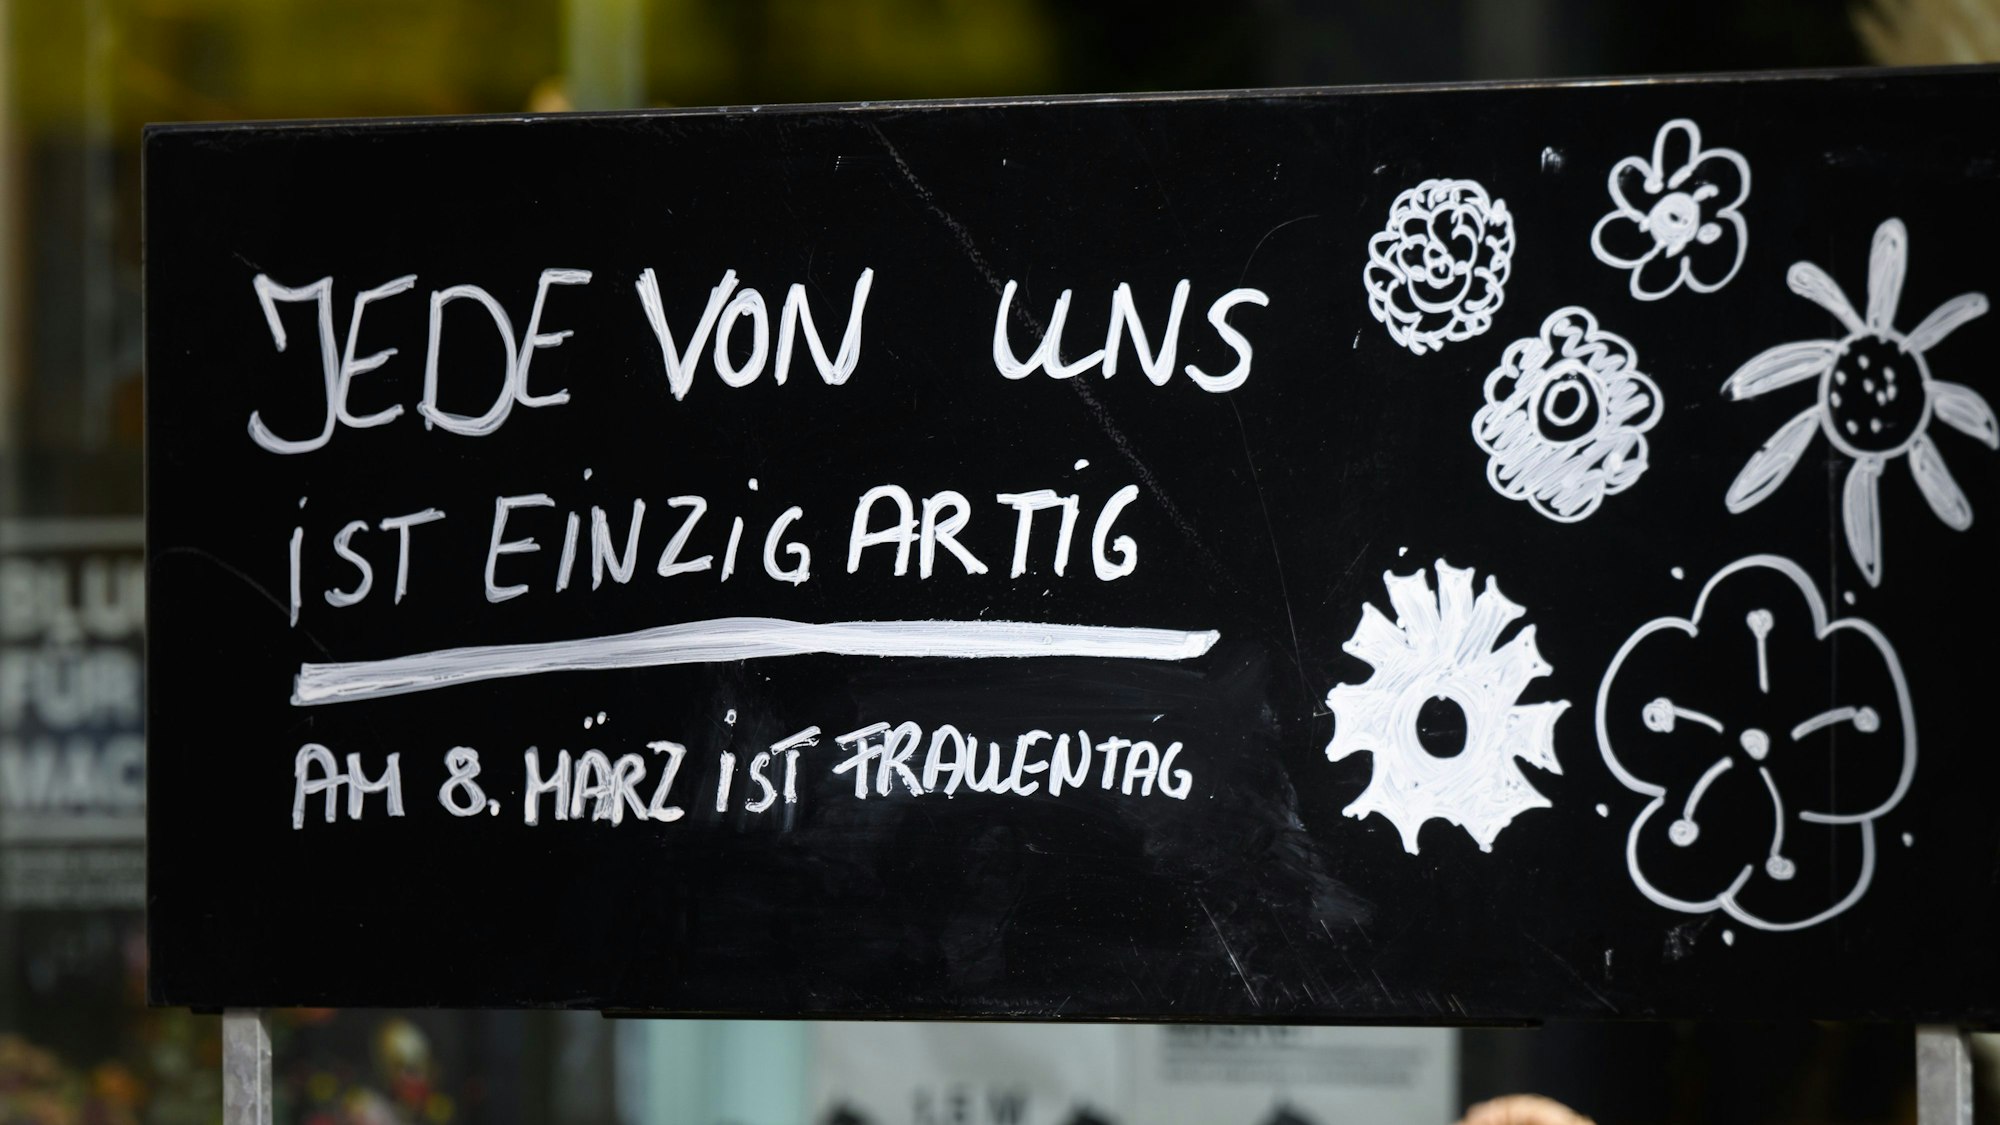 JEDE VON UNS
IST EINZIGARTIG
AM 8. MÄRZ IST FRAUENTAG
FÜR